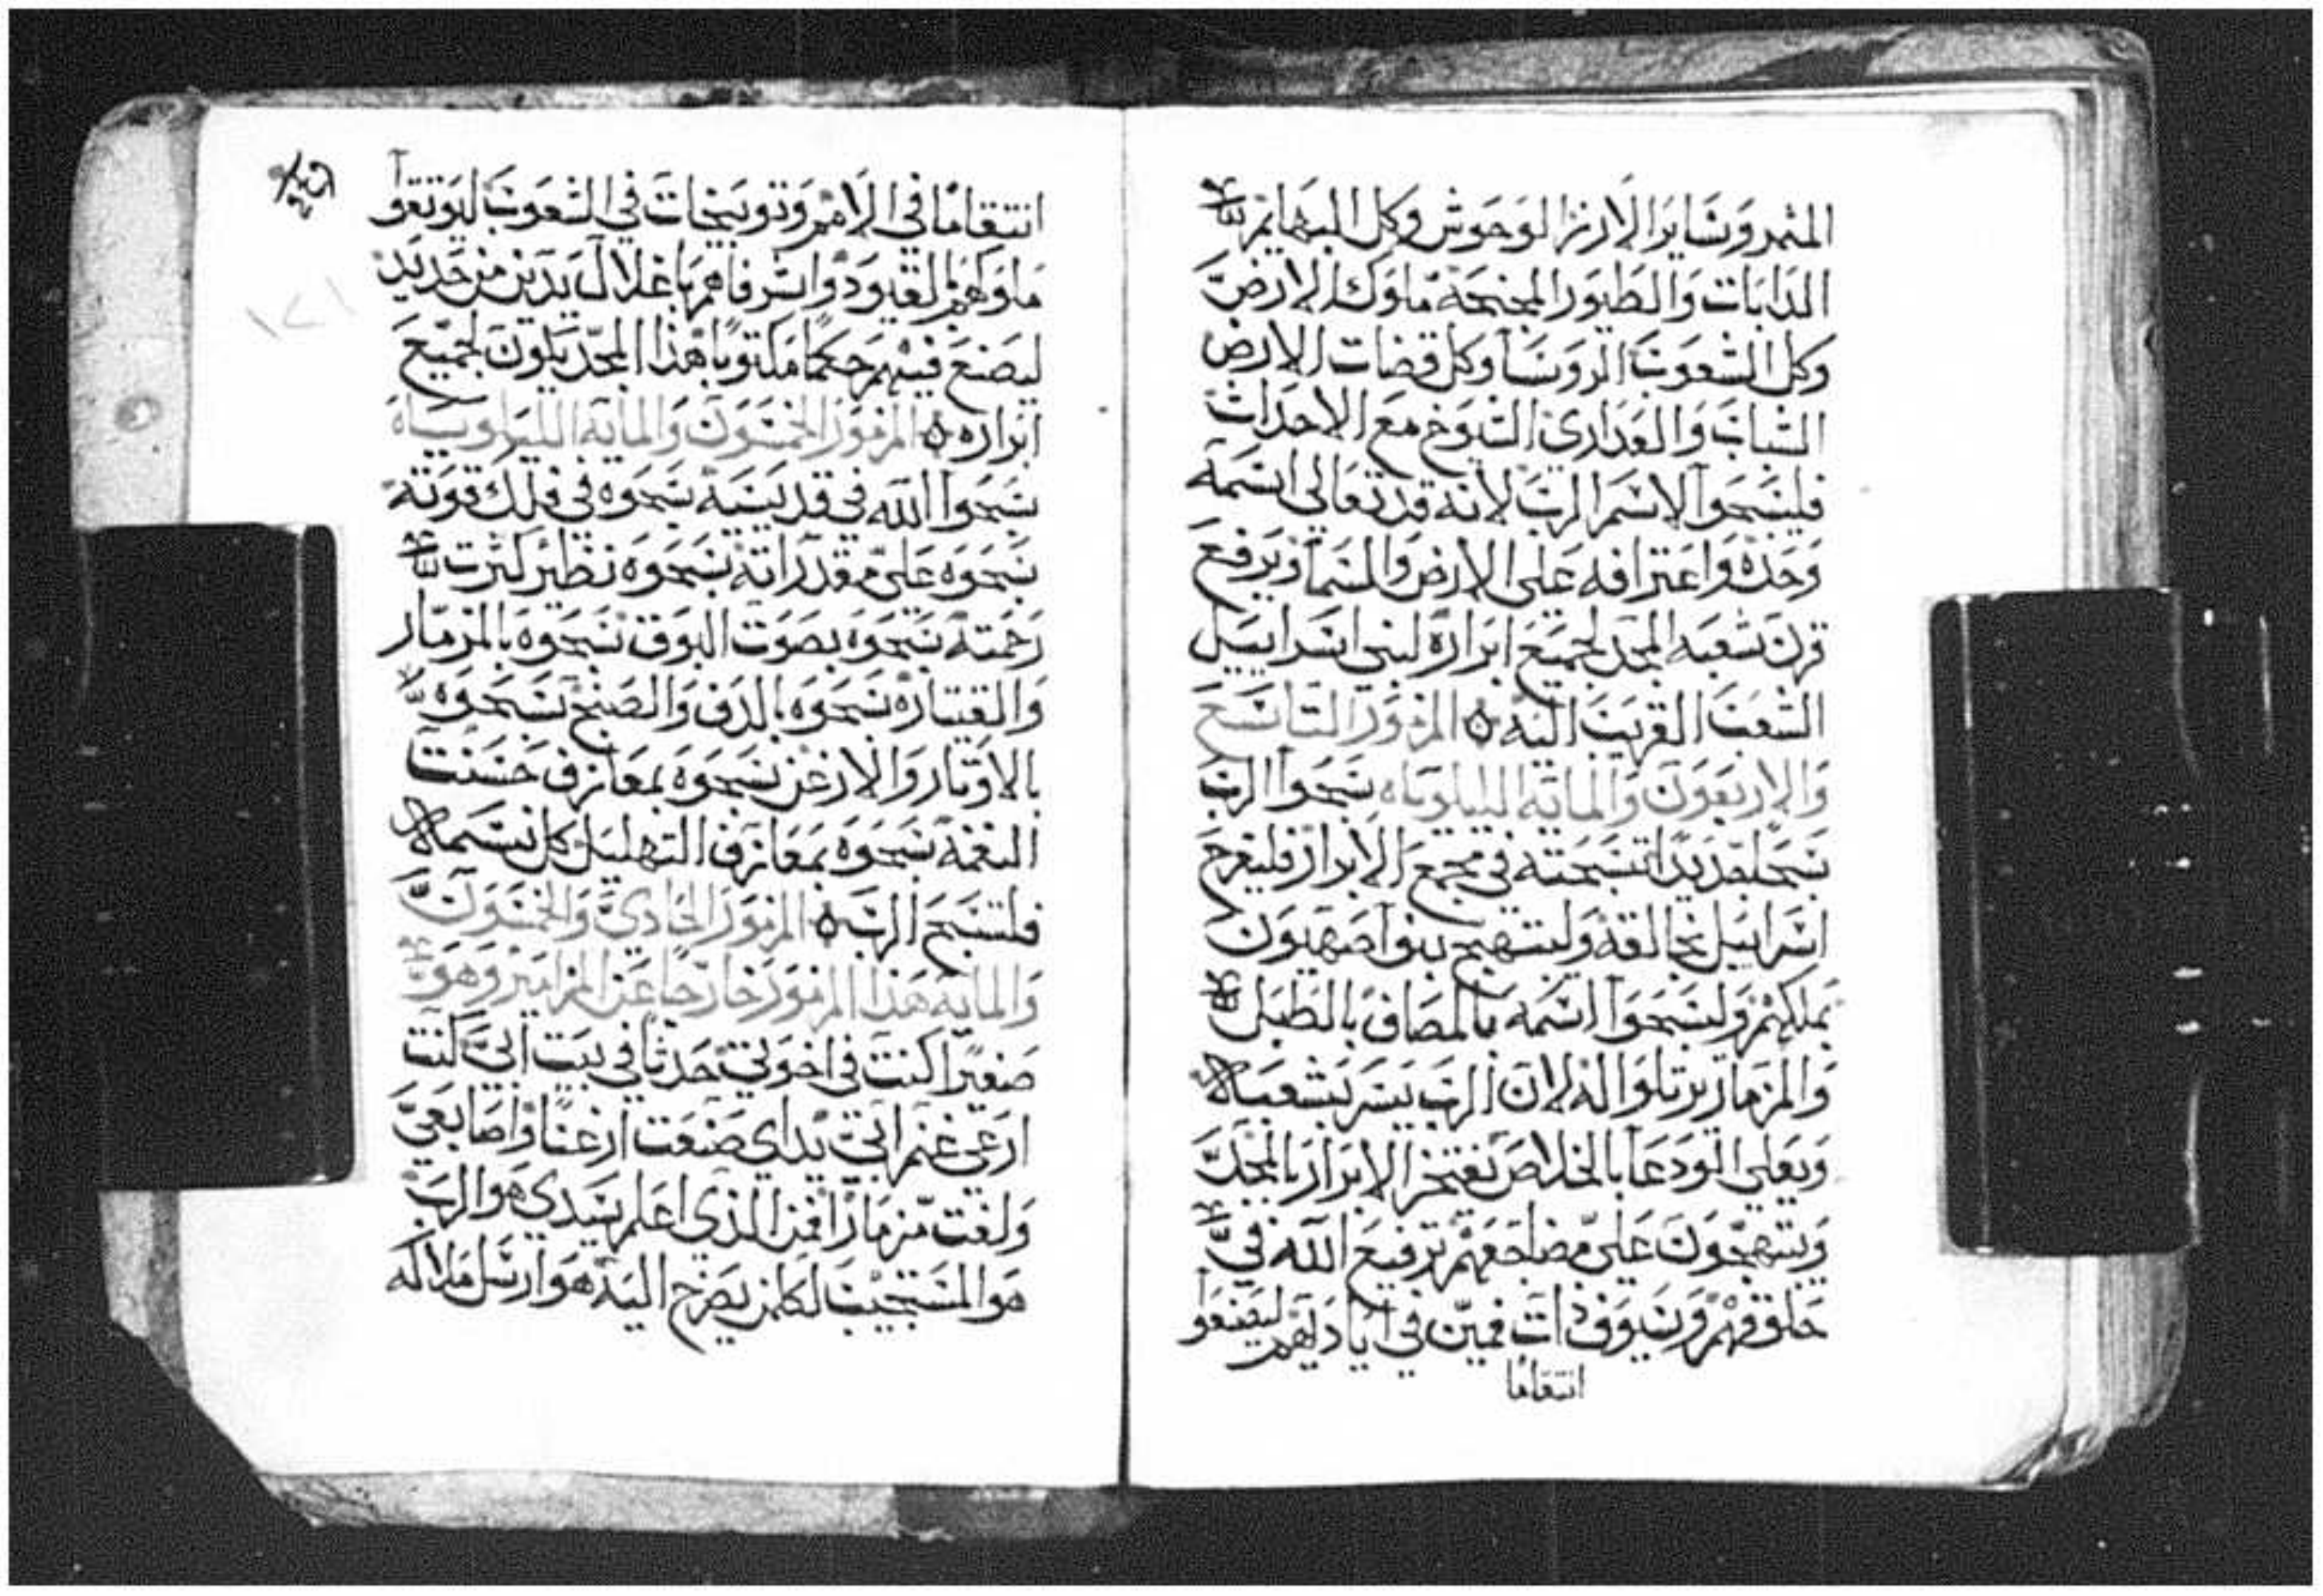 المثمر وسَاير الارز الوحوش وكل البهايم
الدَابات والطيور المجنحة ملوك الارض
وكل الشعوب الروسَا وكل قضات الارض
الشباب والعدارى الشيوخ مع الاحداث
فليسَبحوا لاسم الرب لانه قد تعالى اسمه
وحده واعترافه على الارض والسَما ويرفع
قرن شعبه المجد لجميع ابراره لبني اسراييل
الشعب القريب اليه ه المزمور التاسع
والاربعون والمايه الليلوياه سَبحوا الرب
سَبحا جديدا تسبحته في مجمع الابرار فليفرح
اسراييل بخالقه وليبتهج بنوا صهيون
بملكهم وليسَبحوا اسمه بالمصاف بالطبل
والمزمار يرتلوا له لان الرب يسر بشعبه
ويعلي الودعا بالخلاص تفتخر الابرار بالمجد
ويبتهجون على مضاجعهم ترفيع الله في
حلوقهم وسيوف ذات فمين في اياديهم ليصنعوا
انتقامًا
انتقامًا في الامم وتوبيخات في الشعوب ليوتقوا
ملوكهم بالقيود واشرفاهم باغلال يدين من حديد
ليصنع فيهم حكمًا مكتوبا هذا المجد يكون لجميع
ابراره ه المزمور الخمسون والمايه الليلوياه
سَبحوا الله في قديسيه سَبحوه في فلك قوته
سَبحوه على مقدراته سَبحوه نظير كثرت
رحمته سَبحوه بصوت البوق سَبحوه بالمزمار
والقيتاره سَبحوه بالدف والصنج سَبحوه
بالاوتار والارغن سَبحوه بمعازف حسنت
النغمه سَبحوه بمعازف التهليل كل نسَمه
فلتسَبح الرب ه المزمور الحادي والخمسون
والمايه هذا المزمور خارجًا عن المزامير وهو
صغيرًا كنت في اخوتي حدثا في بيت ابي كنت
ارعى غنم ابي يداي صنعت ارغنا واصابعي
ولفت مزمارًا فمن الذي اعلم سيدي هو الرب
هو المستجيب لكلمن يصرخ اليه هو ارسل ملاكه